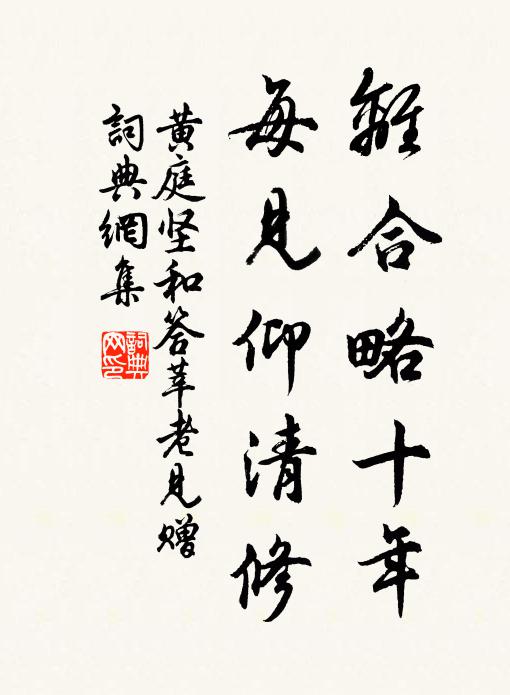 離合略十年
每見仰清修
黃庭坚和答莘老見赠
詞典網集
詞典網印